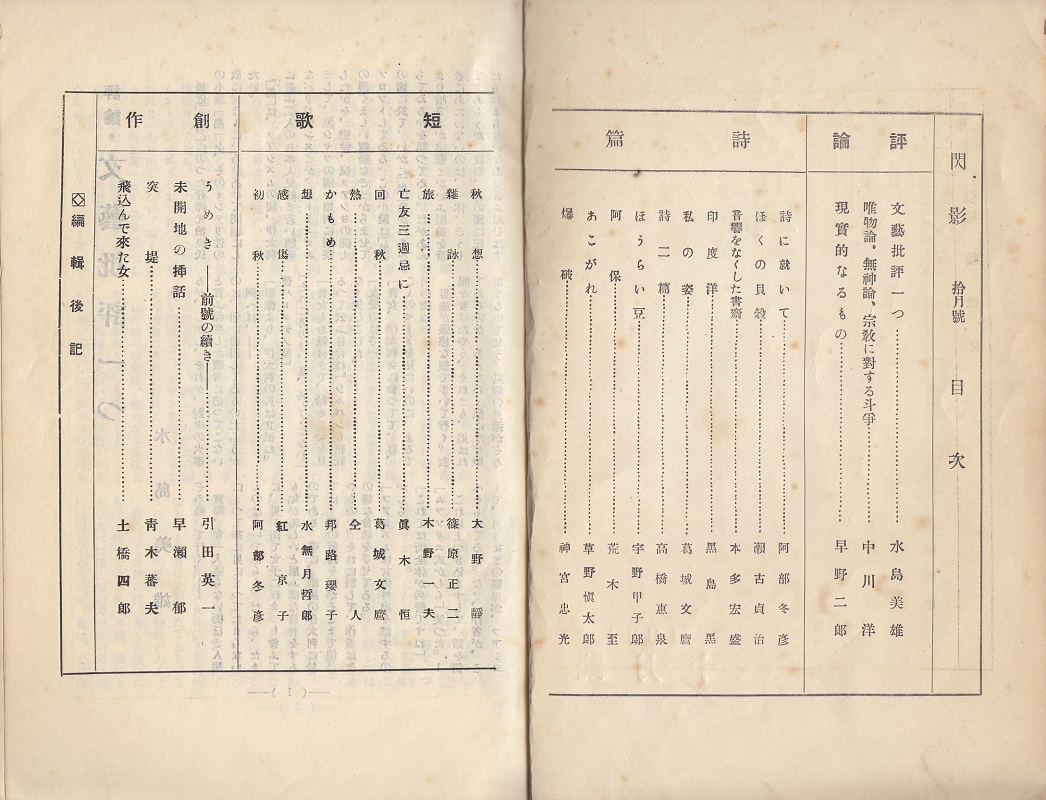 閃影 拾月號 目次
評論
文藝批評一つ……水島美雄
唯物論、無神論、宗敎に對する斗爭……中川洋
現實的なるもの……早野二郎
詩篇
詩に就いて……阿部冬彥
ぼくの貝殼……瀨古貞治
音響をなくした書齋……本多宏盛
印度洋……黑島黑
私の姿……葛城文麿
詩二篇……高橋惠泉
ほうらい豆……宇野甲子郎
阿保……荒木至
あこがれ……草野愼太郎
爆破……神宮忠光
短歌
秋想……大野靜
雜詠……篠原正二
旅……木野一夫
亡友三週忌に……眞木恒
回秋……葛城文麿
熱……仝人
かもめ……邦路瓔子
想……水無月哲郎
感傷……紅京子
初秋……阿部冬彥
創作
うめき——前號の續き——引田英一
未開地の挿話……早瀨郁
突堤……靑木蕃夫
飛込んで來た女……土橋四郎
◇編輯後記